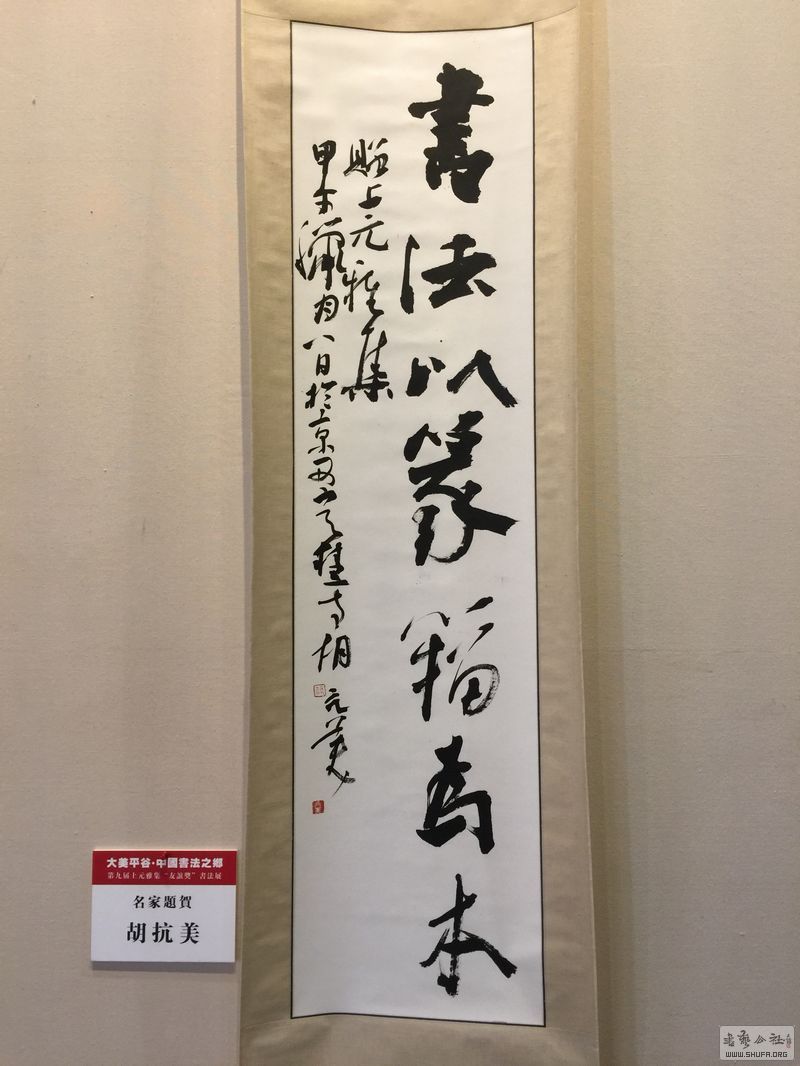 書法以篆籀為本
贻上元雅集
甲午臘月八日於京西
胡抗美
大美平谷·中國書法之鄉
第九届上元雅集“友誼獎”書法展
名家題賀
胡抗美
書藝公社
WWW.SHUFA.ORG